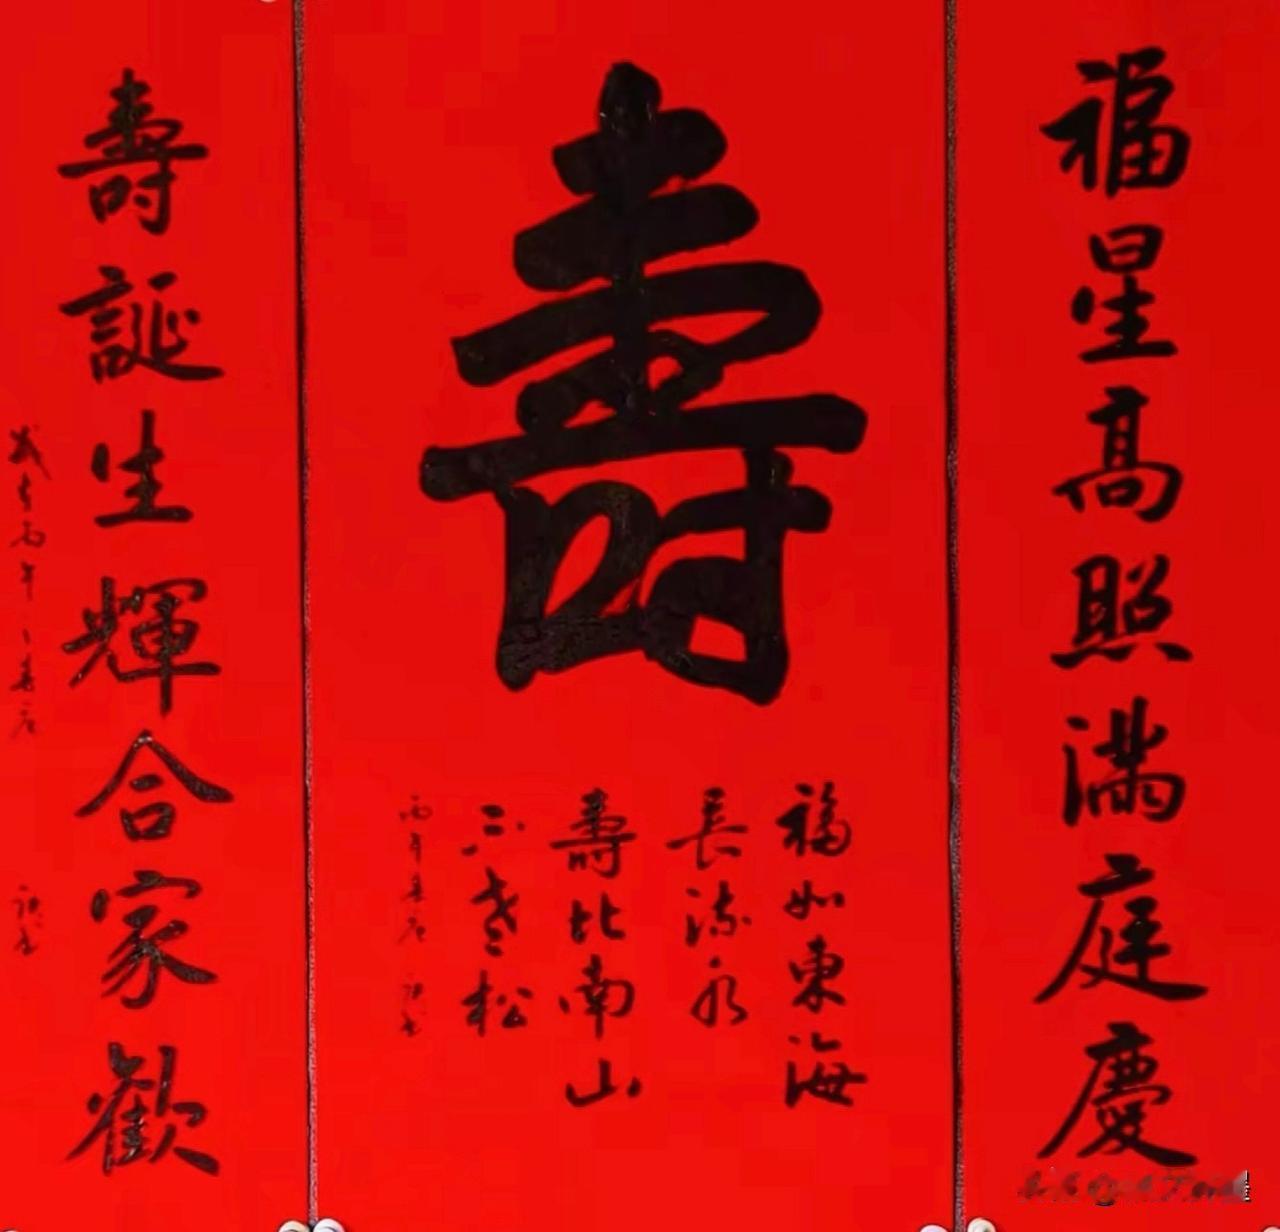 福星高照满庭慶
壽
福如東海
長流水
壽比南山
不老松
丙午春启
壽誕生輝合家歡